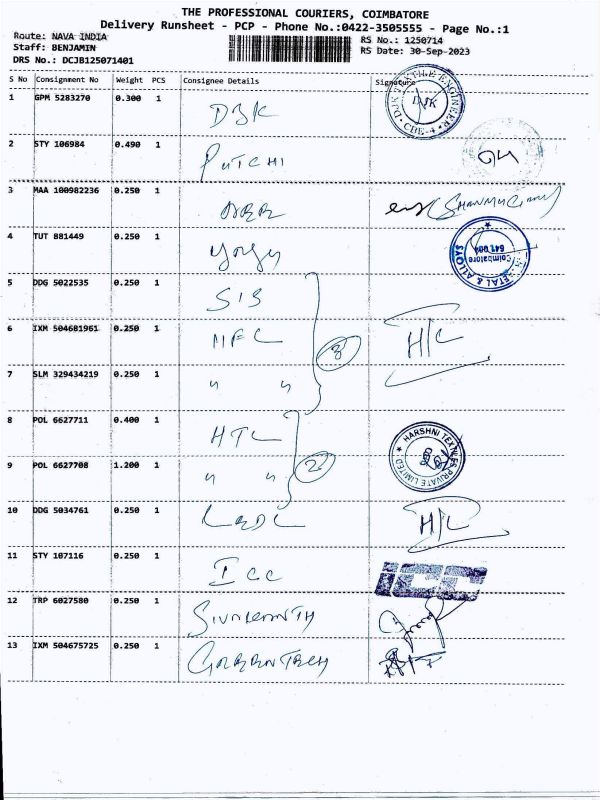 THE PROFESSIONAL COURIERS, COIMBATORE
Delivery Runsheet - PCP - Phone No.:0422-3505555 - Page No.:1
Route: NAVA INDIA RS No.: 1250714
Staff: BENJAMIN RS Date: 30-Sep-2023
DRS No.: DCJB125071401
S No Consignment No Weight PCS Consignee Details Signature
1 GPM 5283270 0.300 1 DJK DJK TEXTILE ENGINEERS CBE-4
2 STY 106984 0.490 1 PUTCHI
3 MAA 100982236 0.250 1 (SHANMUGAM)
4 TUT 881449 0.250 1 METAL & ALLOYS Coimbatore 641 004
5 DDG 5022535 0.250 1 SIB
6 IXM 504681961 0.250 1 MFL 3 H/L
7 SLM 329434219 0.250 1 " "
8 POL 6627711 0.400 1 HTL HARSHNI TEXTILES PRIVATE LIMITED
9 POL 6627708 1.200 1 " " 2
10 DDG 5034761 0.250 1 H/L
11 STY 107116 0.250 1 ICC ICC
12 TRP 6027580 0.250 1 SIVAKANTH
13 IXM 504675725 0.250 1